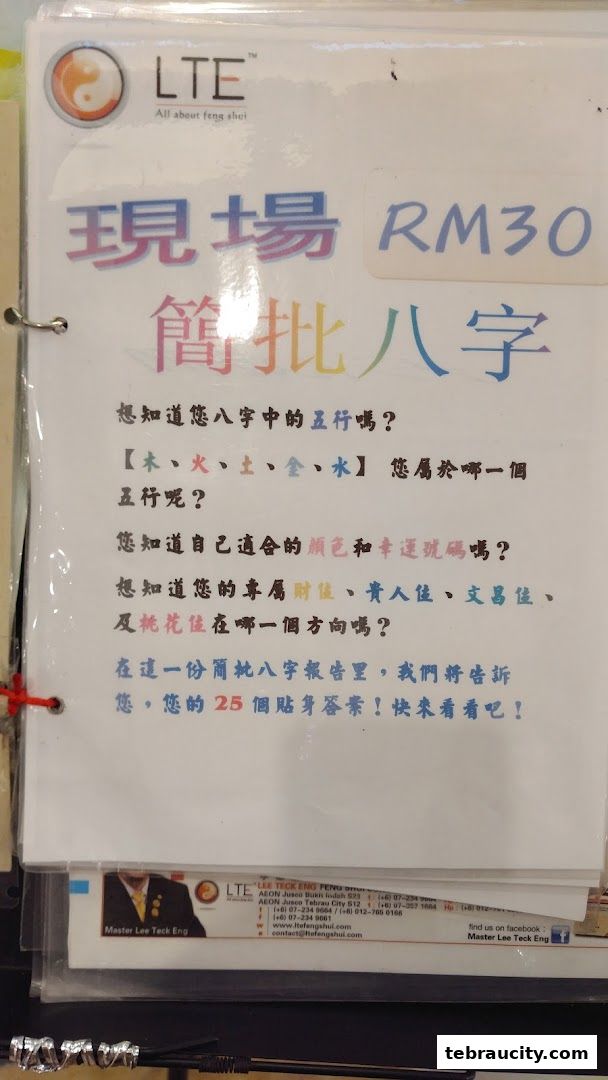 LTE™
All about feng shui
現場 RM30
簡批八字
想知道您八字中的五行嗎？
【木、火、土、金、水】 您屬於哪一個
五行呢？
您知道自己適合的顏色和幸運號碼嗎？
想知道您的專屬財位、貴人位、文昌位、
及桃花位在哪一個方向嗎？
在這一份簡批八字報告里，我們將告訴
您，您的 25 個貼身答案！快來看看吧！
LTE
LEE TECK ENG FENG SHUI
AEON Jusco Bukit Indah S23
AEON Jusco Tebrau City S12
t | (+6) 07-234 9664 / (+6) 012-765 0166
f | (+6) 07-234 9661
w | www.ltefengshui.com
e | contact@ltefengshui.com
Master Lee Teck Eng
find us on facebook :
Master Lee Teck Eng
tebraucity.com